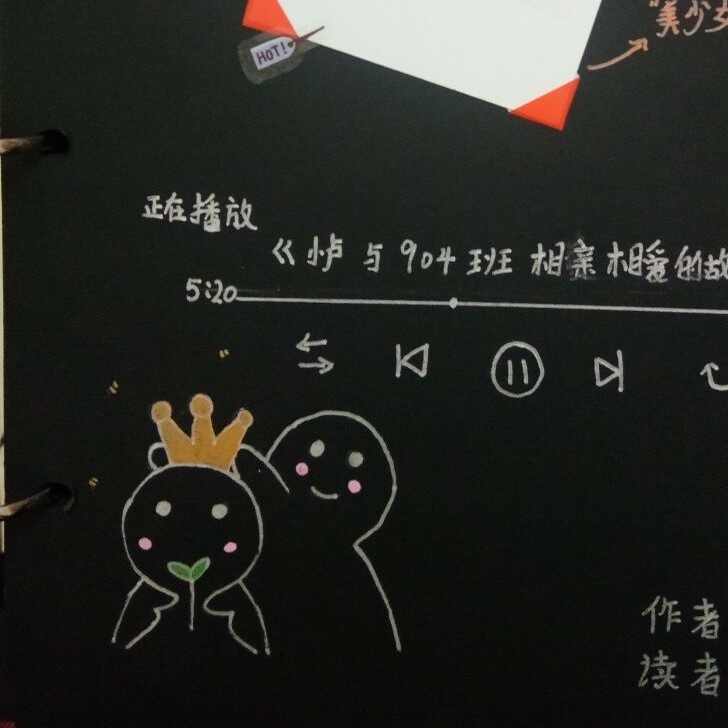 "美少女
HOT!
正在播放
《小卢与904班相亲相爱的故
5:20
作者
读者